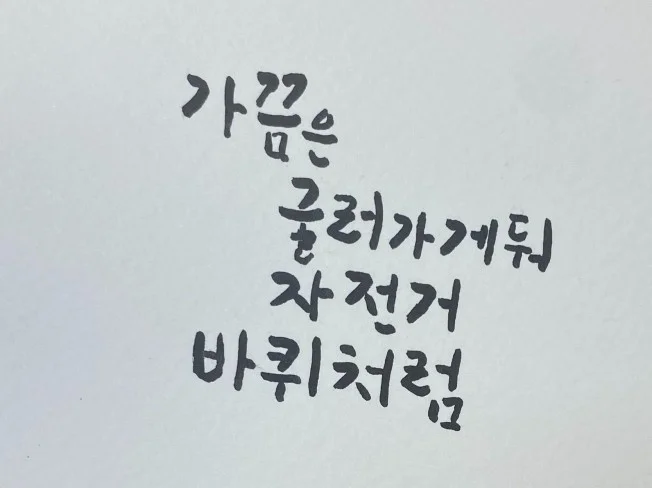 가끔은
굴러가게둬
자전거
바퀴처럼